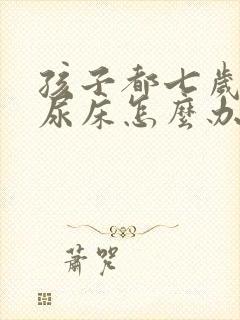 孩子都七歲
尿床怎麼办
蕭咒